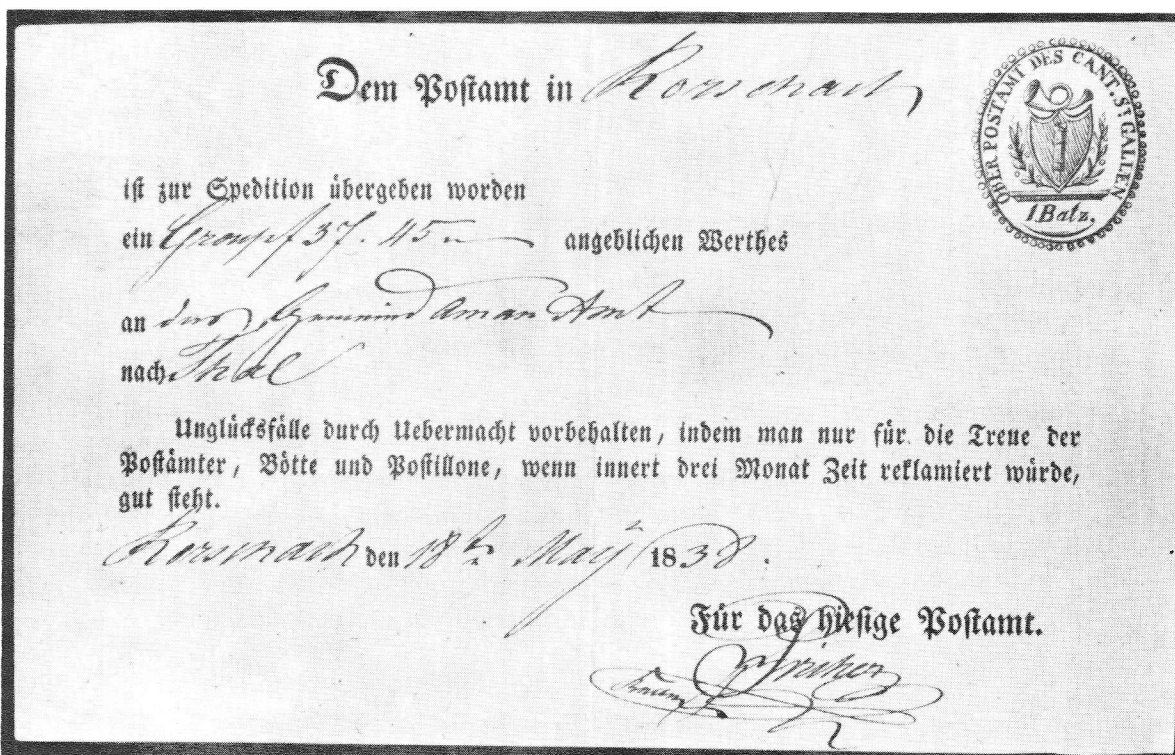 Dem Postamt in Rorschach
OBER POSTAMT DES CANT. ST GALLEN
1 Batz.
ist zur Spedition übergeben worden
ein 37. 45 angeblichen Werthes
an das Gemeind Aman Amt
nach Thal
Unglücksfälle durch Uebermacht vorbehalten, indem man nur für die Treue der
Postämter, Bötte und Postillone, wenn innert drei Monat Zeit reklamiert würde,
gut steht.
Rorschach den 18t May 1838.
Für das hiesige Postamt.